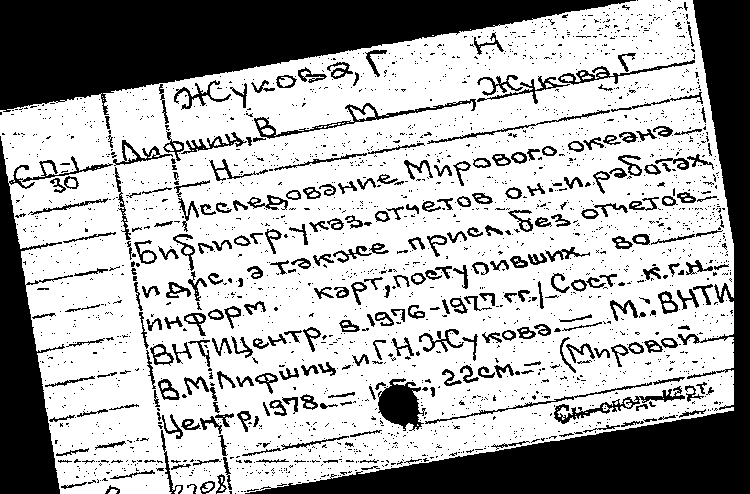 Жукова, Г Н
Лифшиц, В М , Жукова, Г
Н
СП-1
30
Исследование Мирового океана
Библиогр. указ. отчетов о н.-и. работах
и дис., а также присл. без отчетов
информ. карт, поступивших во
ВНТИЦентр в 1976-1977 гг. / Сост. к.г.н.
В.М. Лифшиц и Г.Н. Жукова. — М.: ВНТИ
Центр, 1978. — с.; 22 см. — (Мировой
См. след. карт.
2708